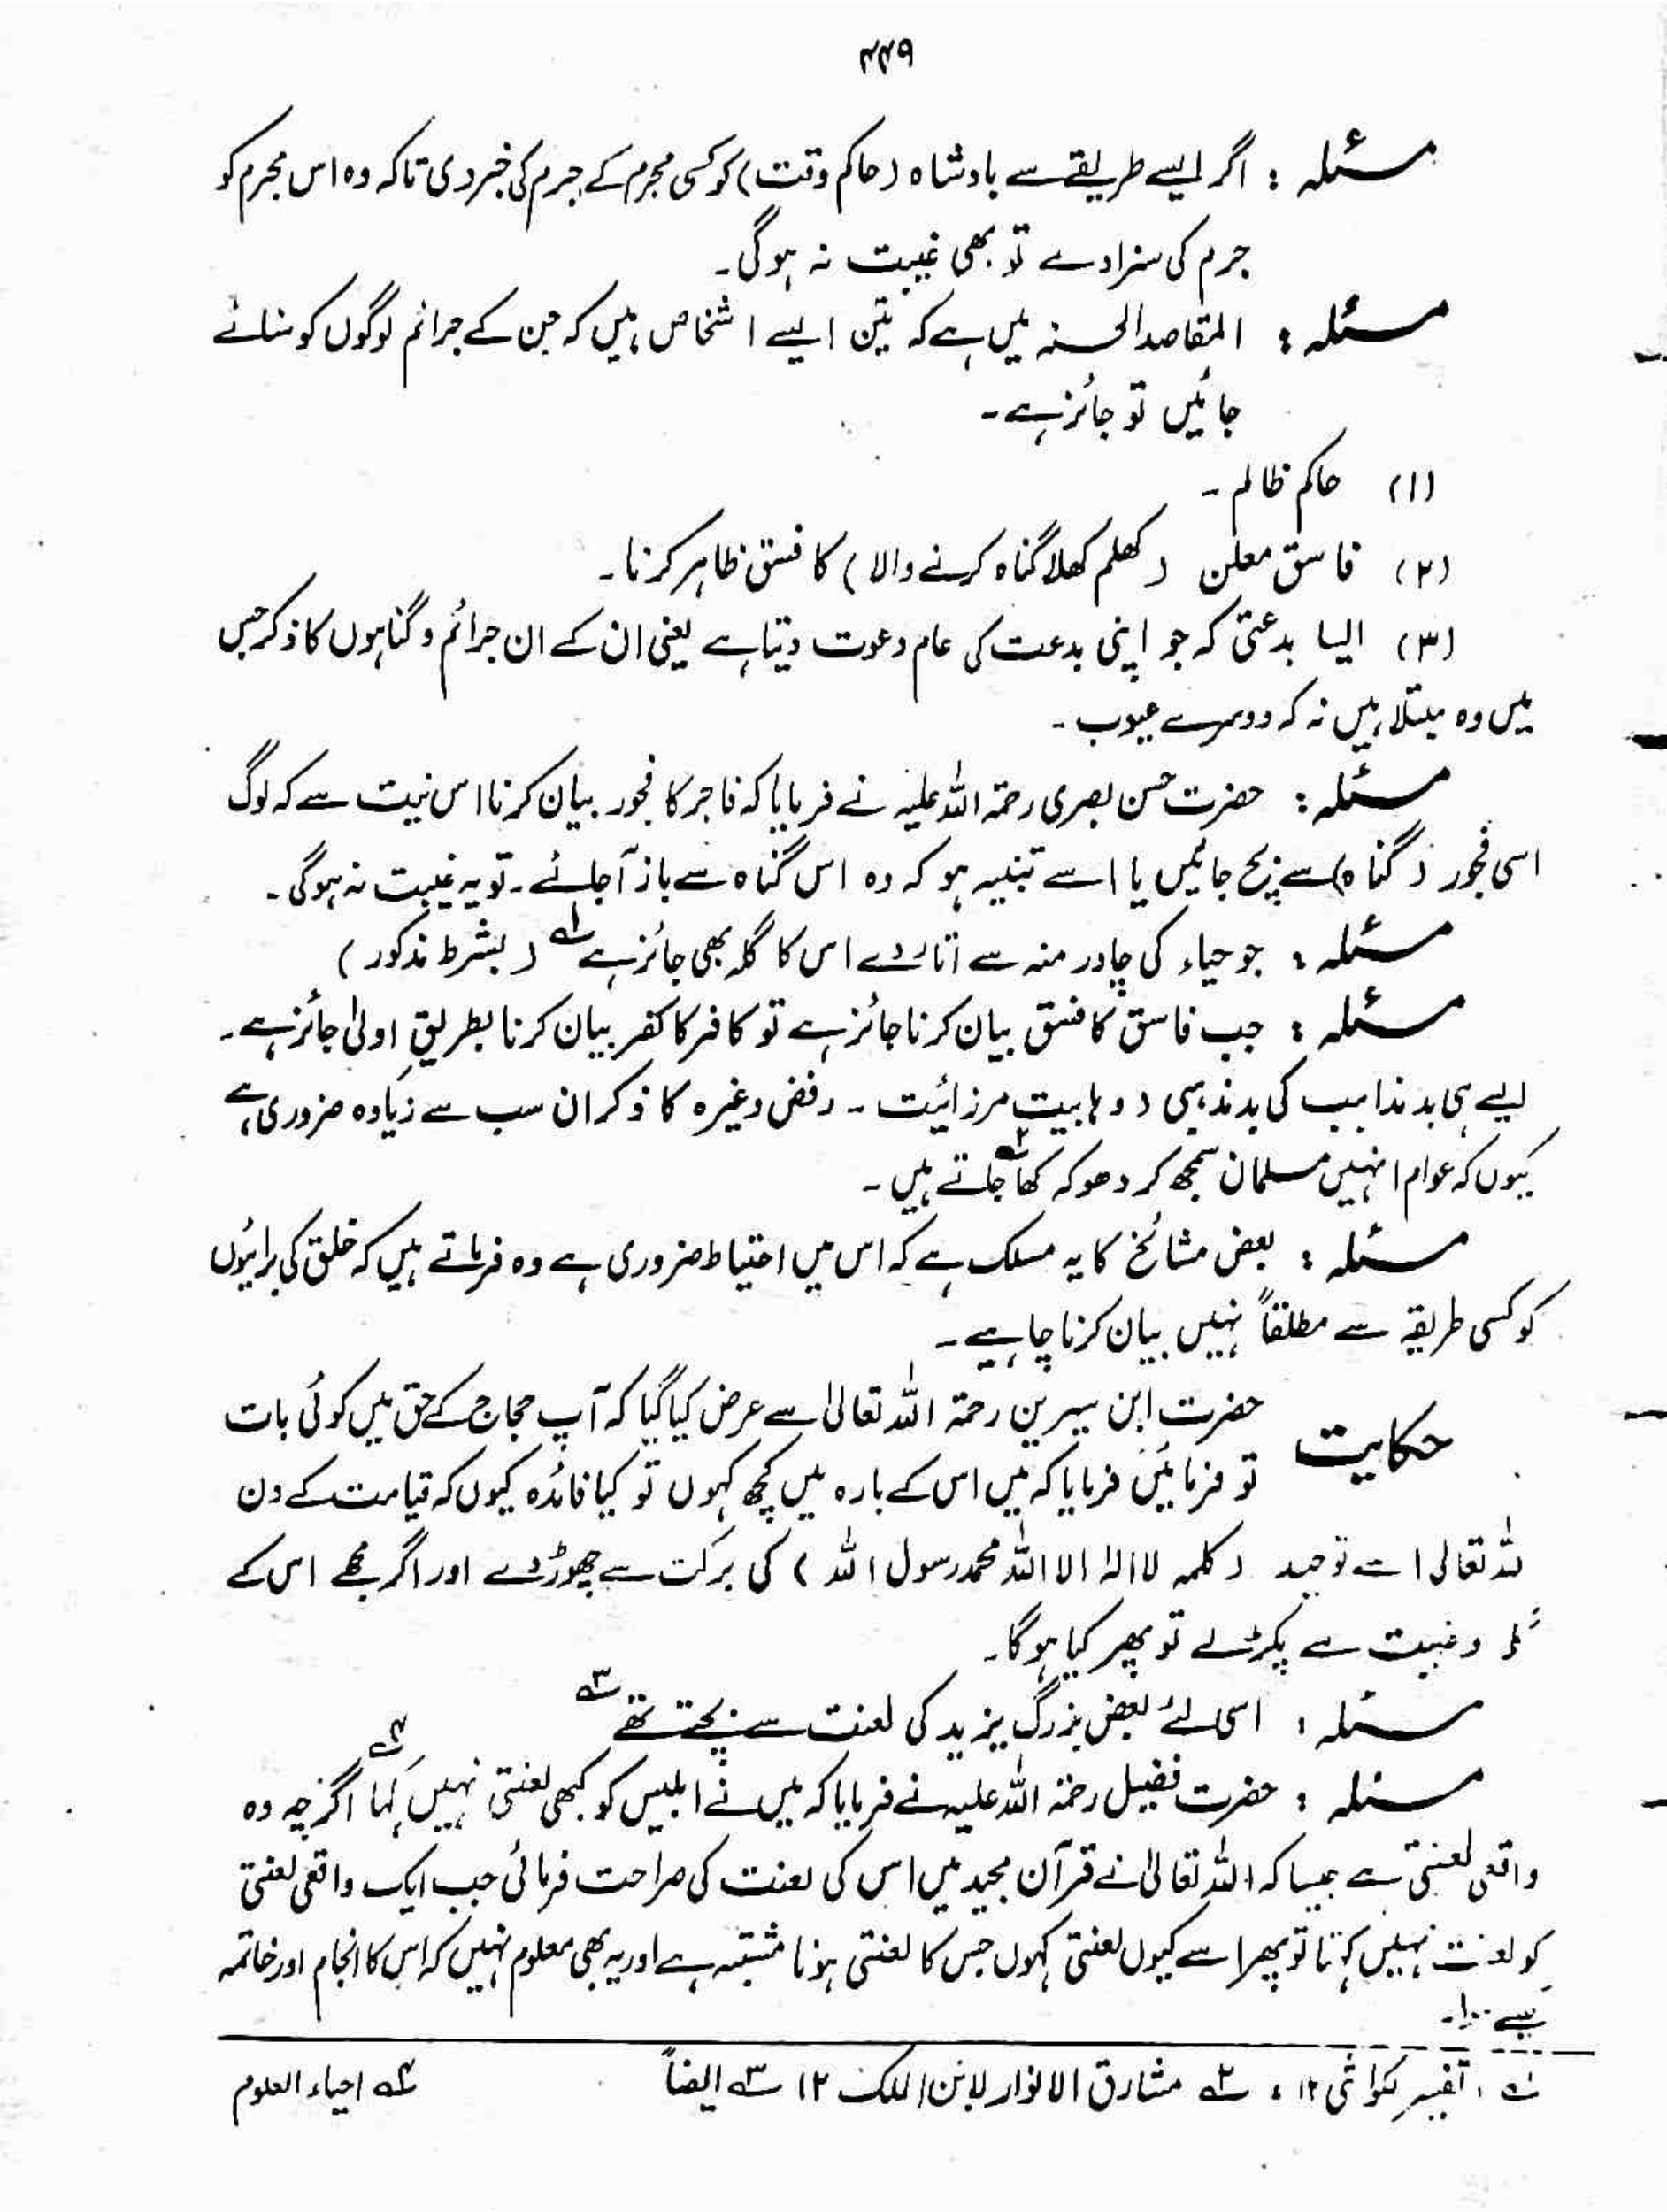 ۴۴۹
مسئلہ : اگر ایسے طریقے سے بادشاہ (حاکم وقت) کو کسی مجرم کے جرم کی خبر دی تاکہ وہ اس مجرم کو
جرم کی سزا دے تو بھی غیبت نہ ہوگی۔
مسئلہ : المقاصد الحسنہ میں ہے کہ تین ایسے اشخاص ہیں کہ جن کے جرائم لوگوں کو سنائے
جائیں تو جائز ہے۔
(۱) حاکم ظالم۔
(۲) فاسق معلن (کھلم کھلا گناہ کرنے والا) کا فسق ظاہر کرنا۔
(۳) ایسا بدعتی کہ جو اپنی بدعت کی عام دعوت دیتا ہے یعنی ان کے ان جرائم و گناہوں کا ذکر جس
میں وہ مبتلا ہیں نہ کہ دوسرے عیوب۔
مسئلہ : حضرت حسن بصری رحمۃ اللہ علیہ نے فرمایا کہ فاجر کا فجور بیان کرنا اس نیت سے کہ لوگ
اسی فجور (گناہ) سے بچ جائیں یا اسے تنبیہ ہو کہ وہ اس گناہ سے باز آجائے۔ تو یہ غیبت نہ ہوگی۔
مسئلہ : جو حیاء کی چادر منہ سے اتار دے اس کا گلہ بھی جائز ہے ۱ (بشرط مذکور)
مسئلہ : جب فاسق کا فسق بیان کرنا جائز ہے تو کافر کا کفر بیان کرنا بطریقِ اولیٰ جائز ہے۔
ایسے ہی بدمذاہب کی بدمذہبی (وہابیت مرزائیت ۔ رفض وغیرہ کا ذکر ان سب سے زیادہ ضروری ہے
کیوں کہ عوام انہیں مسلمان سمجھ کر دھوکہ کھا جاتے ہیں ۲۔
مسئلہ : بعض مشائخ کا یہ مسلک ہے کہ اس میں احتیاط ضروری ہے وہ فرماتے ہیں کہ خلق کی برائیوں
کو کسی طریقہ سے مطلقاً نہیں بیان کرنا چاہیے۔
حکایت حضرت ابن سیرین رحمۃ اللہ تعالیٰ سے عرض کیا گیا کہ آپ حجاج کے حق میں کوئی بات
تو فرمائیں فرمایا کہ میں اس کے بارہ میں کچھ کہوں تو کیا فائدہ کیوں کہ قیامت کے دن
للہ تعالیٰ اسے توحید (کلمہ لا الہ الا اللہ محمد رسول اللہ) کی برکت سے چھوڑ دے اور اگر مجھے اس کے
و غیبت سے پکڑ لے تو پھر کیا ہوگا۔
مسئلہ : اسی لئے بعض بزرگ یزید کی لعنت سے بچتے تھے ۳
مسئلہ : حضرت فضیل رحمۃ اللہ علیہ نے فرمایا کہ میں نے ابلیس کو کبھی لعنتی نہیں کہا ۴ اگرچہ وہ
واقعی لعنتی ہے جیسا کہ اللہ تعالیٰ نے قرآن مجید میں اس کی لعنت کی صراحت فرمائی جب ایک واقعی لعنتی
کو لعنت نہیں کہتا تو پھر اسے کیوں لعنتی کہوں جس کا لعنتی ہونا مشتبہ ہے اور یہ بھی معلوم نہیں کہ اس کا انجام اور خاتمہ
تفسیر کواشی ۱۲، ۲ مشارق الانوار لابن الملک ۱۲ ۳ ایضاً ۴ احیاء العلوم